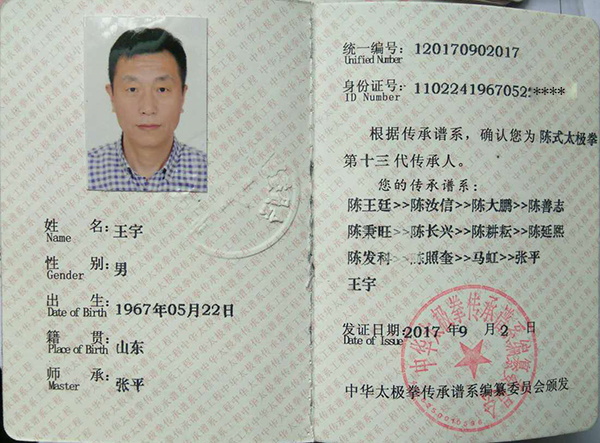 姓 名：王宇
Name
性 别：男
Gender
出 生：1967年05月22日
Date of Birth
籍 贯：山东
Place of Birth
师 承：张平
Master
统一编号：120170902017
Unified Number
身份证号：1102241967052*****
ID Number
根据传承谱系，确认您为陈式太极拳
第十三代传承人。
您的传承谱系：
陈王廷>>陈汝信>>陈大鹏>>陈善志
陈秉旺>>陈长兴>>陈耕耘>>陈延熙
陈发科>>陈照奎>>马虹>>张平
王宇
发证日期：2017年9月2日
Date of Issue
中华太极拳传承谱系编纂委员会颁发
中华太极拳传承谱系编纂委员会